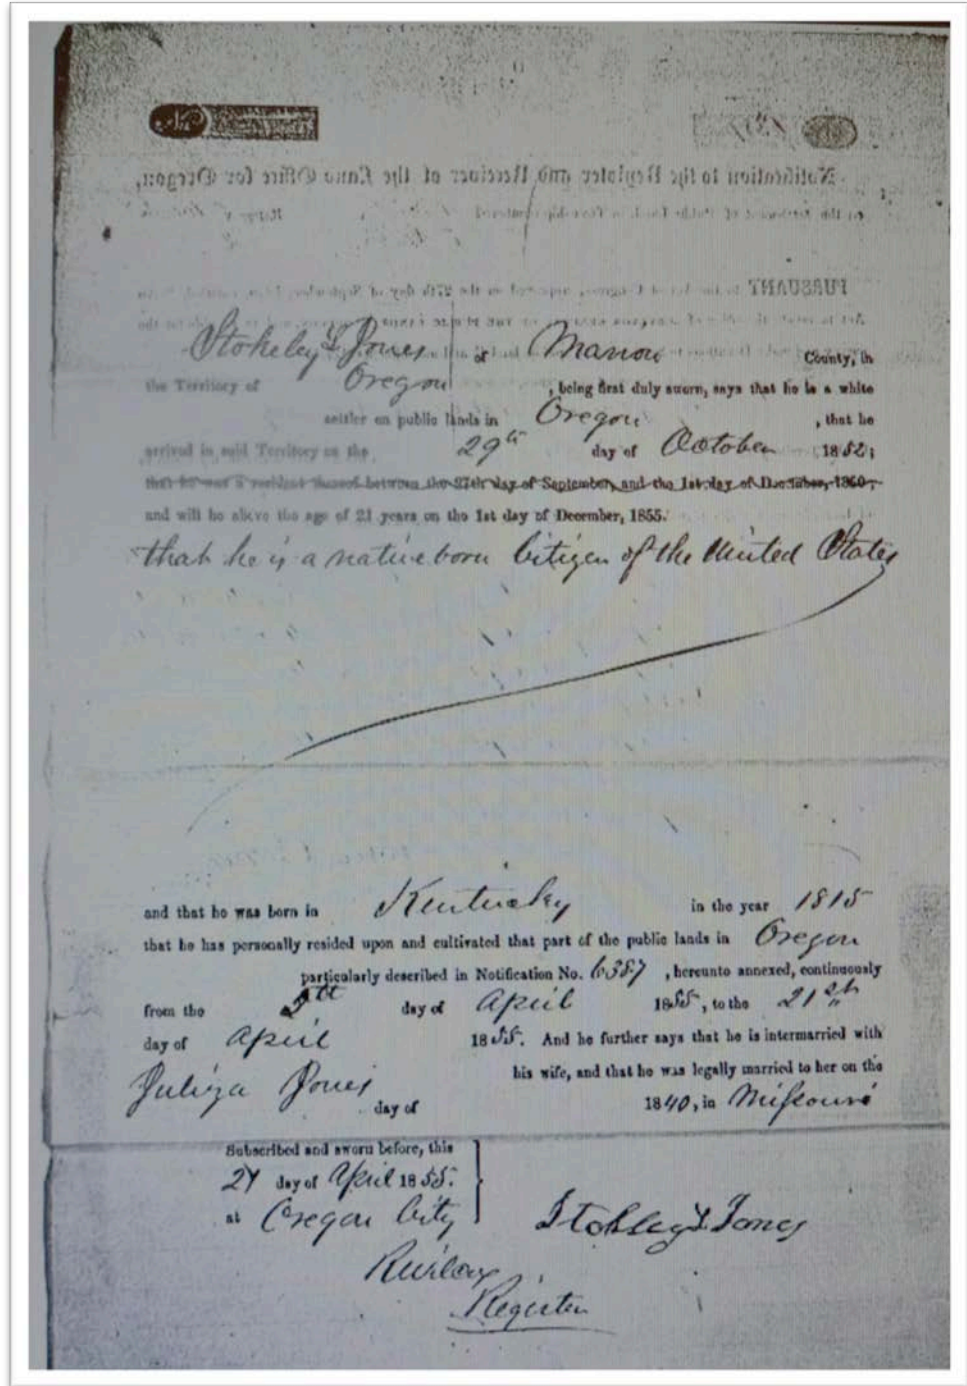 Notification to the Register and Receiver of the Land Office for Oregon,
PURSUANT
Stokeley L Jones of Marion County, in
the Territory of Oregon, being first duly sworn, says that he is a white
settler on public lands in Oregon, that he
arrived in said Territory on the 29th day of October 1852;
that he was a resident thereof between the 27th day of September, and the 1st day of December, 1850,
and will be above the age of 21 years on the 1st day of December, 1855.
that he is a native born Citizen of the United States
and that he was born in Kentucky in the year 1815
that he has personally resided upon and cultivated that part of the public lands in Oregon
particularly described in Notification No. 6387, hereunto annexed, continuously
from the day of April 1855, to the 21st
day of April 1855. And he further says that he is intermarried with
his wife, and that he was legally married to her on the
Juliza Jones day of 1840, in Missouri
Subscribed and sworn before, this
day of April 1855.
at Oregon City
Stokley L Jones
Register